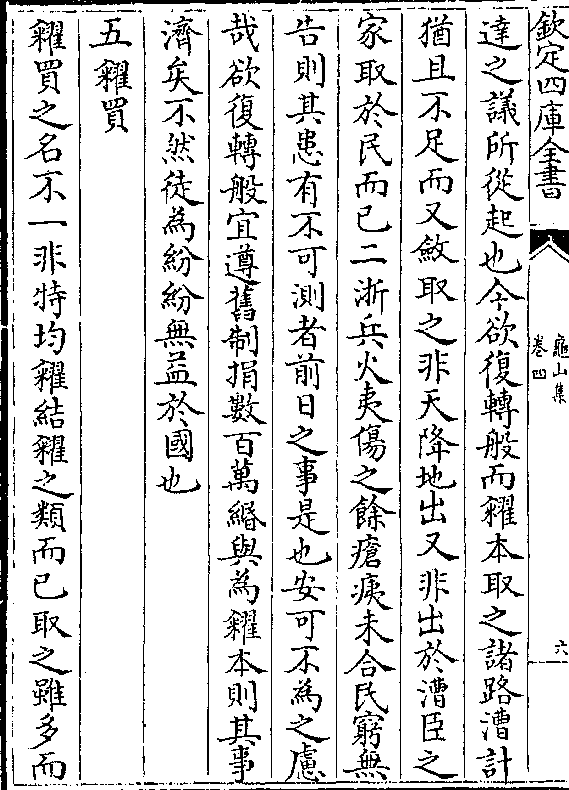 欽定四庫全書
龜山集
卷四
六
達之議所從起也今欲復轉般而糴本取之諸路漕計
猶且不足而又斂取之非天降地出又非出於漕臣之
家取於民而已二浙兵火夷傷之餘瘡痍未合民窮無
告則其患有不可測者前日之事是也安可不為之慮
哉欲復轉般宜遵舊制捐數百萬緡與為糴本則其事
濟矣不然徒為紛紛無益於國也
五糴買
糴買之名不一非特均糴結糴之類而已取之雖多而